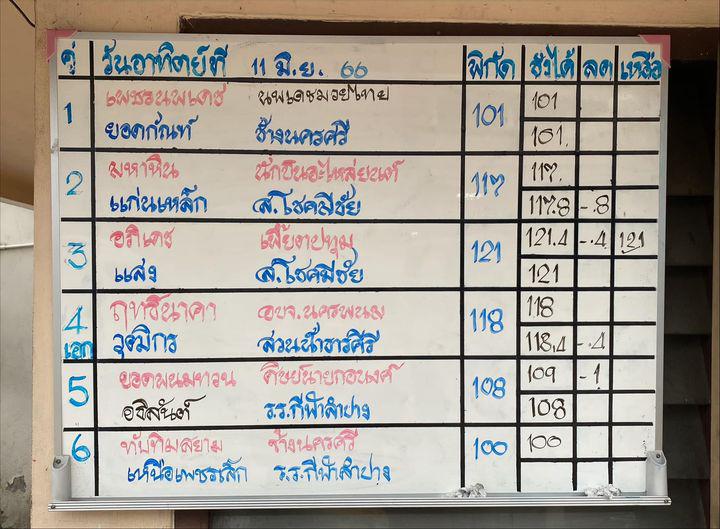 คู่ วันอาทิตย์ที่ 11 มิ.ย. 66 พิกัด ชั่งได้ ลด เหลือ
1 เพชรนพเดช นพเดชมวยไทย 101 101
ยอดกัณฑ์ ช้างนครศรี 101.
2 มหาหิน นักบินอะไหล่ยนต์ 117 117.
แก่นเหล็ก ส.โชคมีชัย 117.8 -.8
3 อภิเดช 121 121.4 -.4 121
แสง ส.โชคมีชัย 121
4 ฤทธินาคา อบจ.นครพนม 118 118
เอก วุฒิกร สวนน้ำธารศีรี 118.4 -.4
5 ยอดพนมทวน ศิษย์นายกอนงค์ 108 109 -1
อชิลันต์ ร.ร.กีฬาลำปาง 108
6 ทับทิมสยาม ช้างนครศรี 100 100
เหนือเพชรเล็ก ร.ร.กีฬาลำปาง